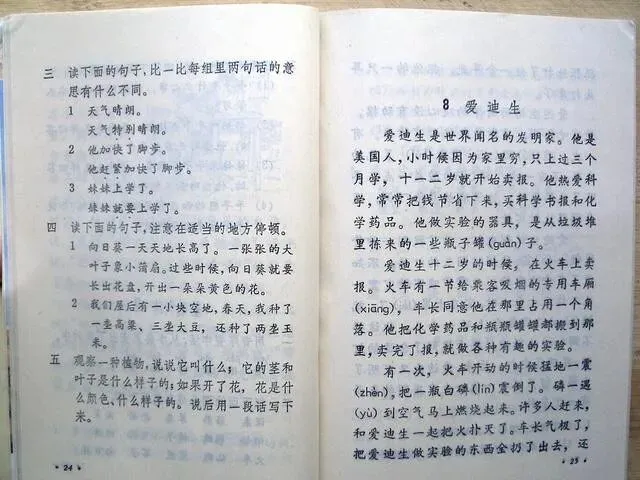 三 读下面的句子,比一比每组里两句话的意
思有什么不同。
1 天气晴朗。
天气特别晴朗。
2 他加快了脚步。
他赶紧加快了脚步。
3 妹妹上学了。
妹妹就要上学了。
四 读下面的句子,注意在适当的地方停顿。
1 向日葵一天天地长高了。一张张的大
叶子象小蒲扇。过些时候,向日葵就要
长出花盘,开出一朵朵黄色的花。
2 我们屋后有一小块空地,春天,我种了
一垄高粱、三垄大豆,还种了两垄玉
米。
五 观察一种植物,说说它叫什么;它的茎和
叶子是什么样子的;如果开了花,花是什
么颜色、什么样子的。说后用一段话写下
来。
24
8 爱迪生
爱迪生是世界闻名的发明家。他是
美国人,小时候因为家里穷,只上过三个
月学,十一二岁就开始卖报。他热爱科
学,常常把钱节省下来,买科学书报和化
学药品。他做实验的器具,是从垃圾堆
里拣来的一些瓶子罐(guàn)子。
爱迪生十二岁的时候,在火车上卖
报。火车有一节给乘客吸烟的专用车厢
(xiāng),车长同意他在那里占用一个角
落。他把化学药品和瓶瓶罐罐都搬到那
里,卖完了报,就做各种有趣的实验。
有一次,火车开动的时候猛地一震
(zhèn),把一瓶白磷(lín)震倒了。磷一遇
(yù)到空气马上燃烧起来。许多人赶来,
和爱迪生一起把火扑灭了。车长气极了,
把爱迪生做实验的东西全扔了出去,还
25